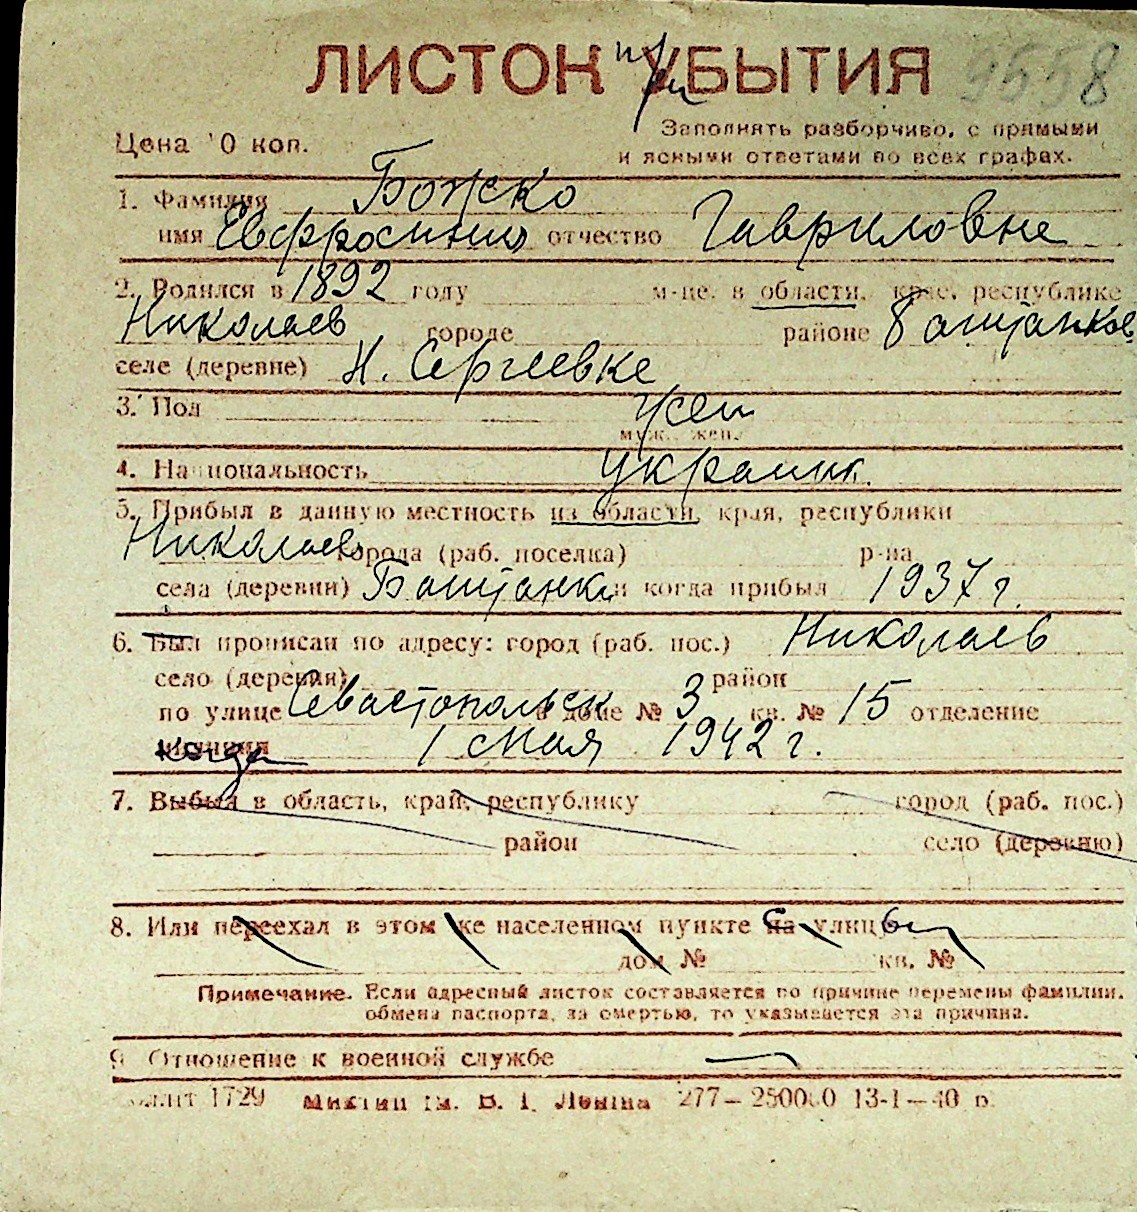 ЛИСТОК при УБЫТИЯ 9558
Цена 10 коп.
Заполнять разборчиво, с прямыми
и ясными ответами во всех графах.
1. Фамилия Божко
имя Евфросиния отчество Гавриловне
2. Родился в 1892 году м-це, в области, крае, республике
Николаев городе районе Баштанков
селе (деревне) Н. Сергеевке
3. Пол жен
муж. жен.
4. Национальность украинк.
5. Прибыл в данную местность из области, края, республики
Николаев города (раб. поселка) р-на
села (деревни) Баштанка и когда прибыл 1937 г.
6. Был прописан по адресу: город (раб. пос.) Николаев
село (деревня) район
по улице Севастопольск в доме № 3 кв. № 15 отделение
милиции когда 1 мая 1942 г.
7. Выбыл в область, край, республику город (раб. пос.)
район село (деревню)
8. Или переехал в этом же населенном пункте на с улицы
дом № кв. №
Примечание. Если адресный листок составляется по причине перемены фамилии,
обмена паспорта, за смертью, то указывается эта причина.
9. Отношение к военной службе —
1729 им. В. І. Леніна 277—250000 13-1—40 р.